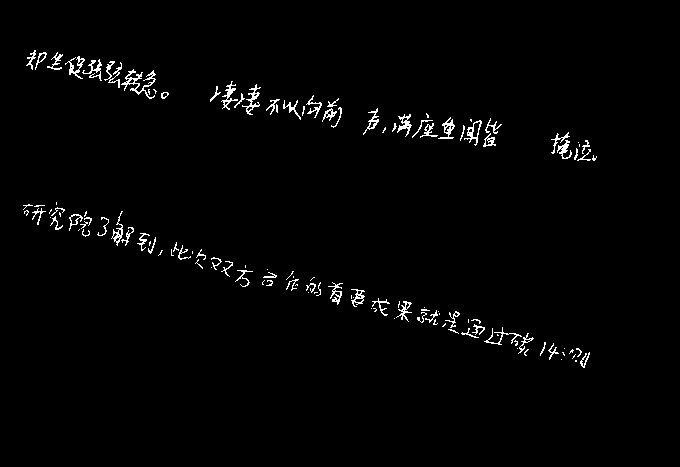 却坐促弦弦转急。 凄凄不似向前 声,满座重闻皆 掩泣。
研究院了解到,此次双方合作的首要成果就是通过碳14测